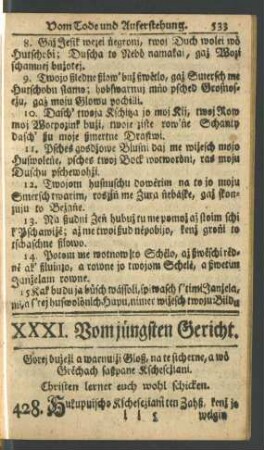 Vom Tode und Auferstehung. 533
8. Gaž Jesič wezei űegroni, twoi Duch wolei wó
Hutschobi; Duscha to Nebó namakai, gaž Wozi
schamnej bužotej.
9. Twojo sledne słow' buž swětlo, gaž Smersch me
Hutschobu stamo; hobswarnuj mňo psched Groſnoſ-
ežu, gaž moju Glowu pochili.
10. Daſch' twoja Kschiža jo moj Kij, twoj Row
moj Worpogink buži, twoje ziſte rowne Schanty
daſch' ſu moje ſmertne Droſtwi.
11. Psches goſdzowe Bluſni daj me wižesch mojo
Huswoleńe, pſches twoj Bock wotworbni, ras moju
Duschu pschewohži.
12. Twojom husmuschu dowěrim na to jo moju
Smerſch twarim, roſgin me Zura ńebaſke, gaž ſkon-
zuju to Bežańe.
13. Na ſludni Zeń hubuž tu ne pomoz aſ ſtoim ſchi
k' Pſchawizē; až me twoi ſud nēpobijo, kenž groſi to
tſchaſchne ſlowo.
14. Potom me wotnowſto Schělo, aſ ſwěſchi réd-
ně ak' ſluinzo, a rowne jo twojom Schělē, a ſwetim
Janzelam rowne.
15 Kak budu ja buſch wäſſoli, ſpiwaſch ſ' timi Janzela-
mi, a ſ' tej huſwolonich Hapu, nimer wižeſch twoju Bild.
XXXI. Vom jüngsten Gericht.
Gorej buželi a warnuiži Gloß, na te ſicherne, a wó
Grēchach ſaſpane Kſcheſčiani.
Christen lernet euch wohl schicken.
428. Hukupuiſcho Kſcheſčiani ten Zaß, kenž jo
L l 5 welgin